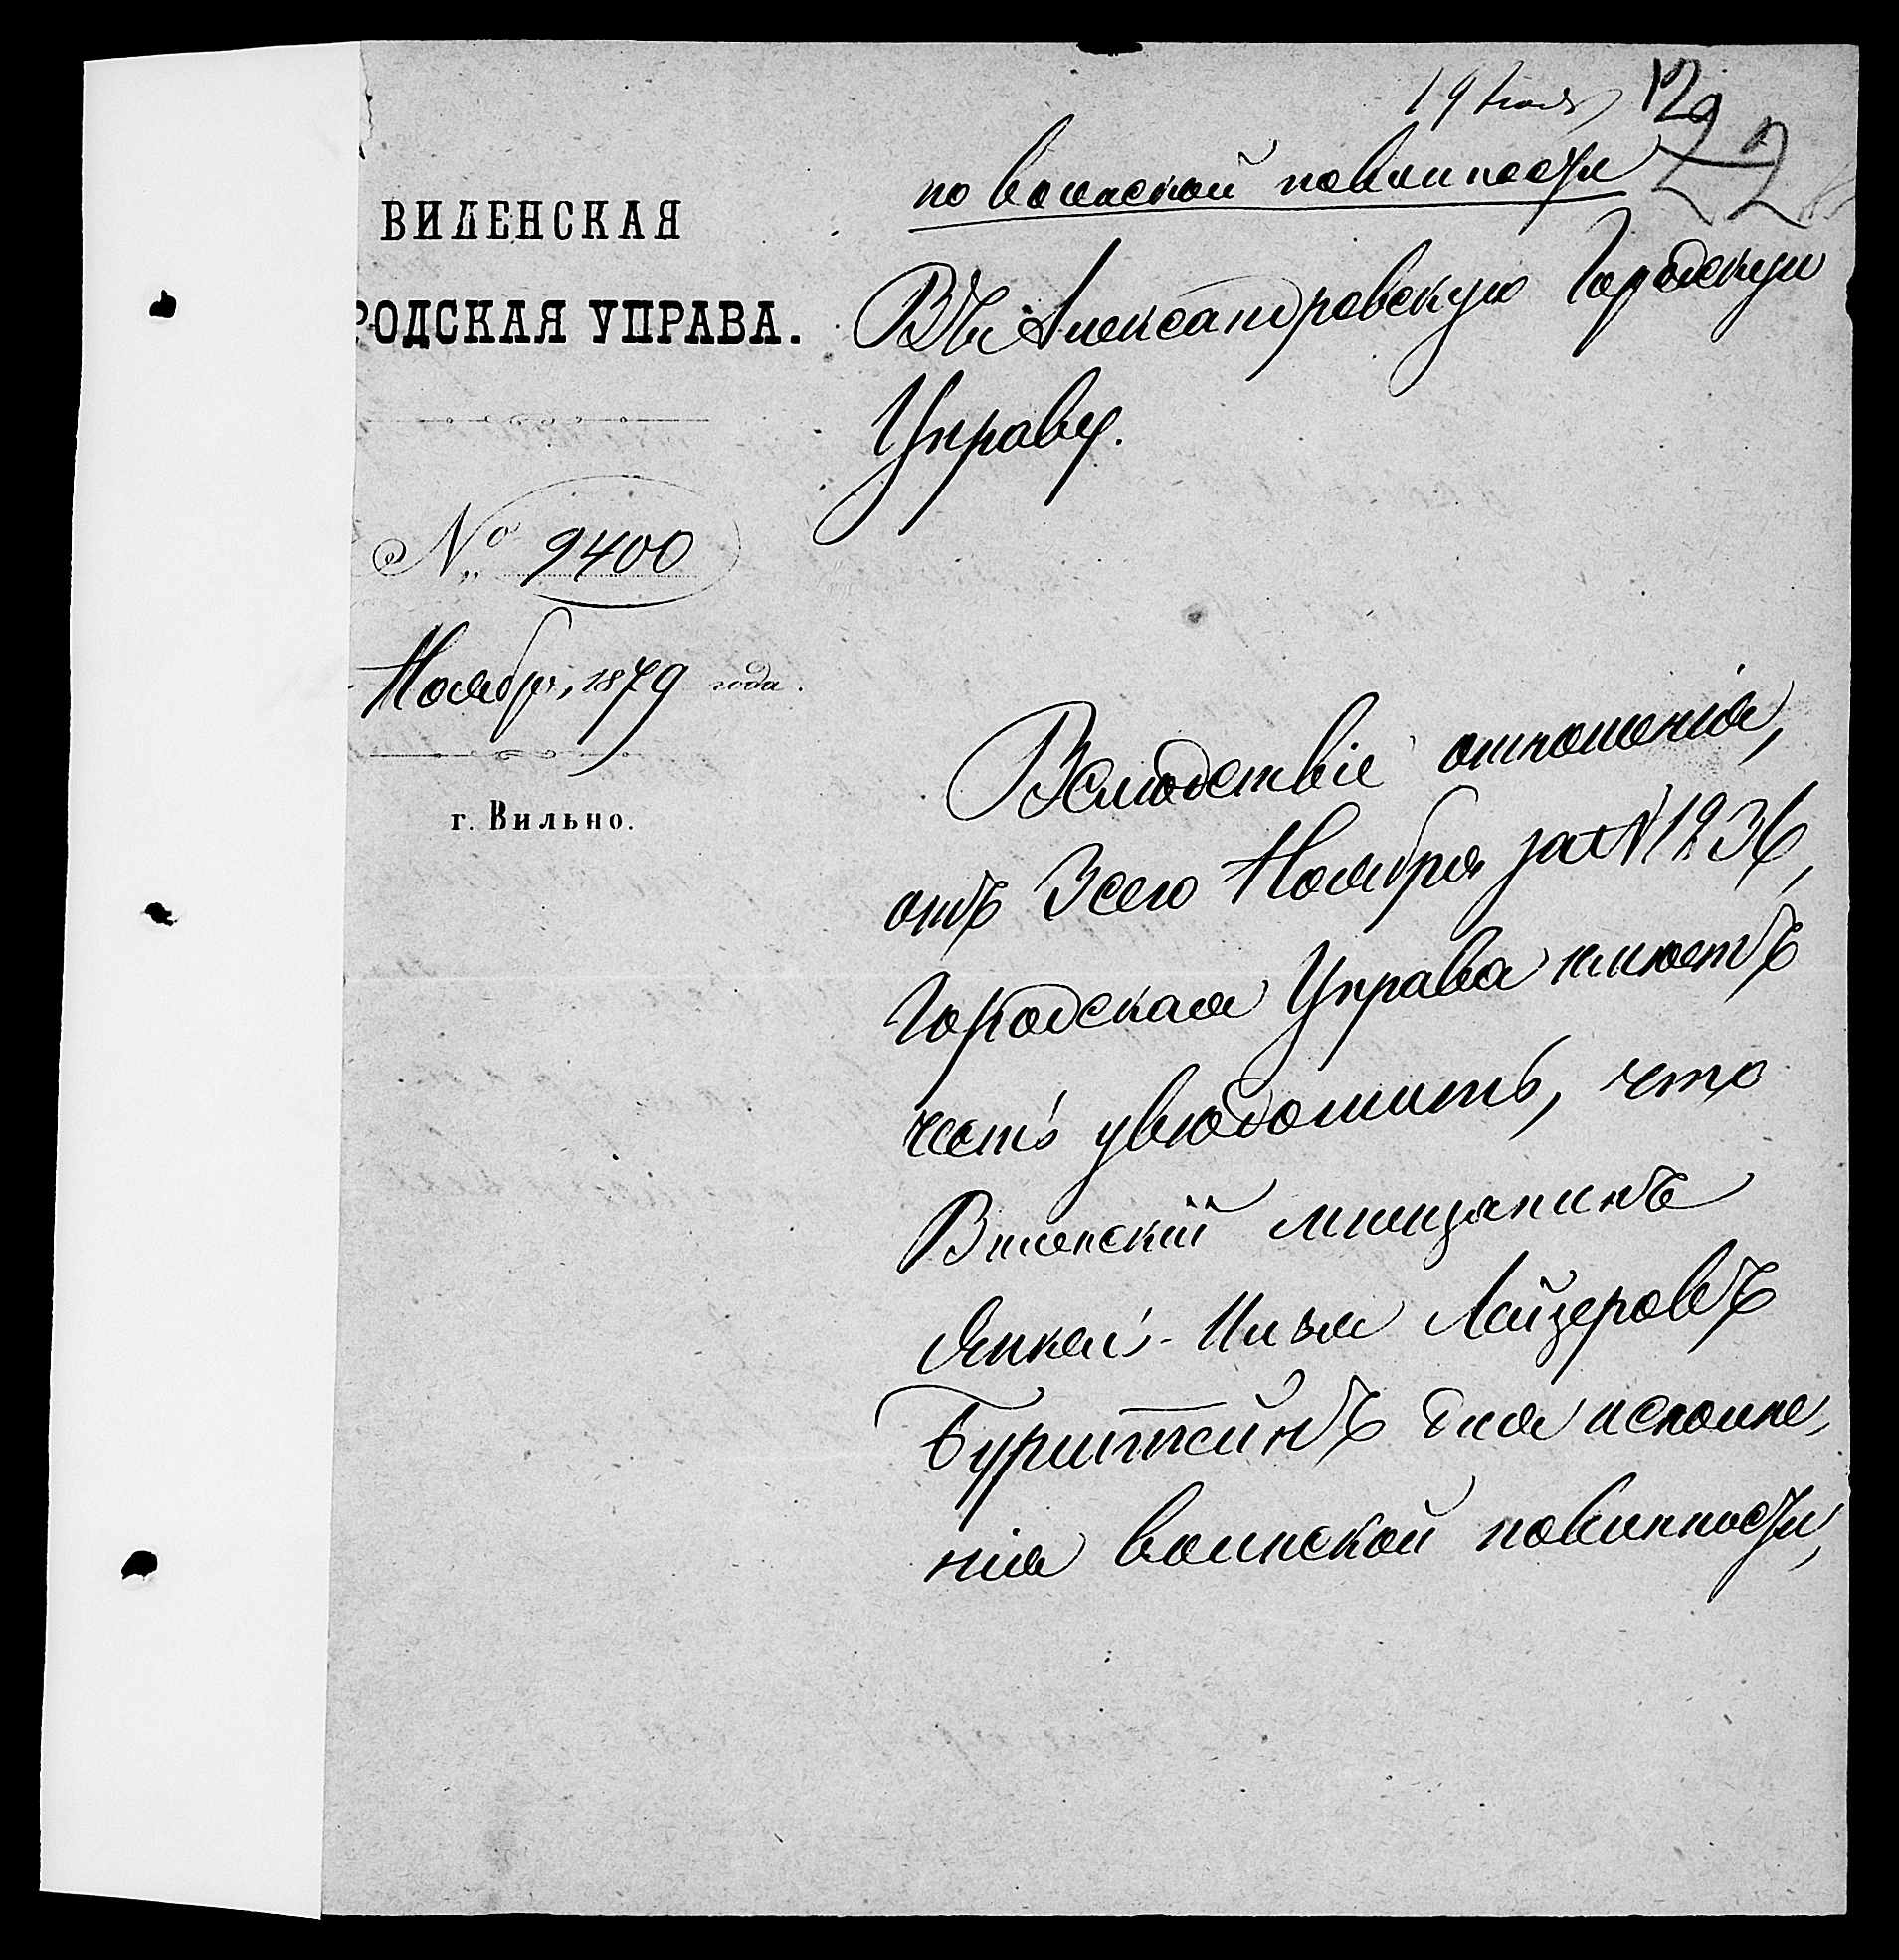 19 Ноября 12
22
по воинской повинности
ВИЛЕНСКАЯ
РОДСКАЯ УПРАВА.
Въ Александровскую Городскую
Управу.
№ 9400
Ноябр. 1879 года.
г. Вильно.
Вслѣдствіе отношенія,
отъ 3 сего Ноября за № 1236,
Городская Управа имѣетъ
честь увѣдомить, что
Виленскій мѣщанинъ
Янкель-Илья Лейзеровъ
Бурштейнъ для исполне-
нія воинской повинности,